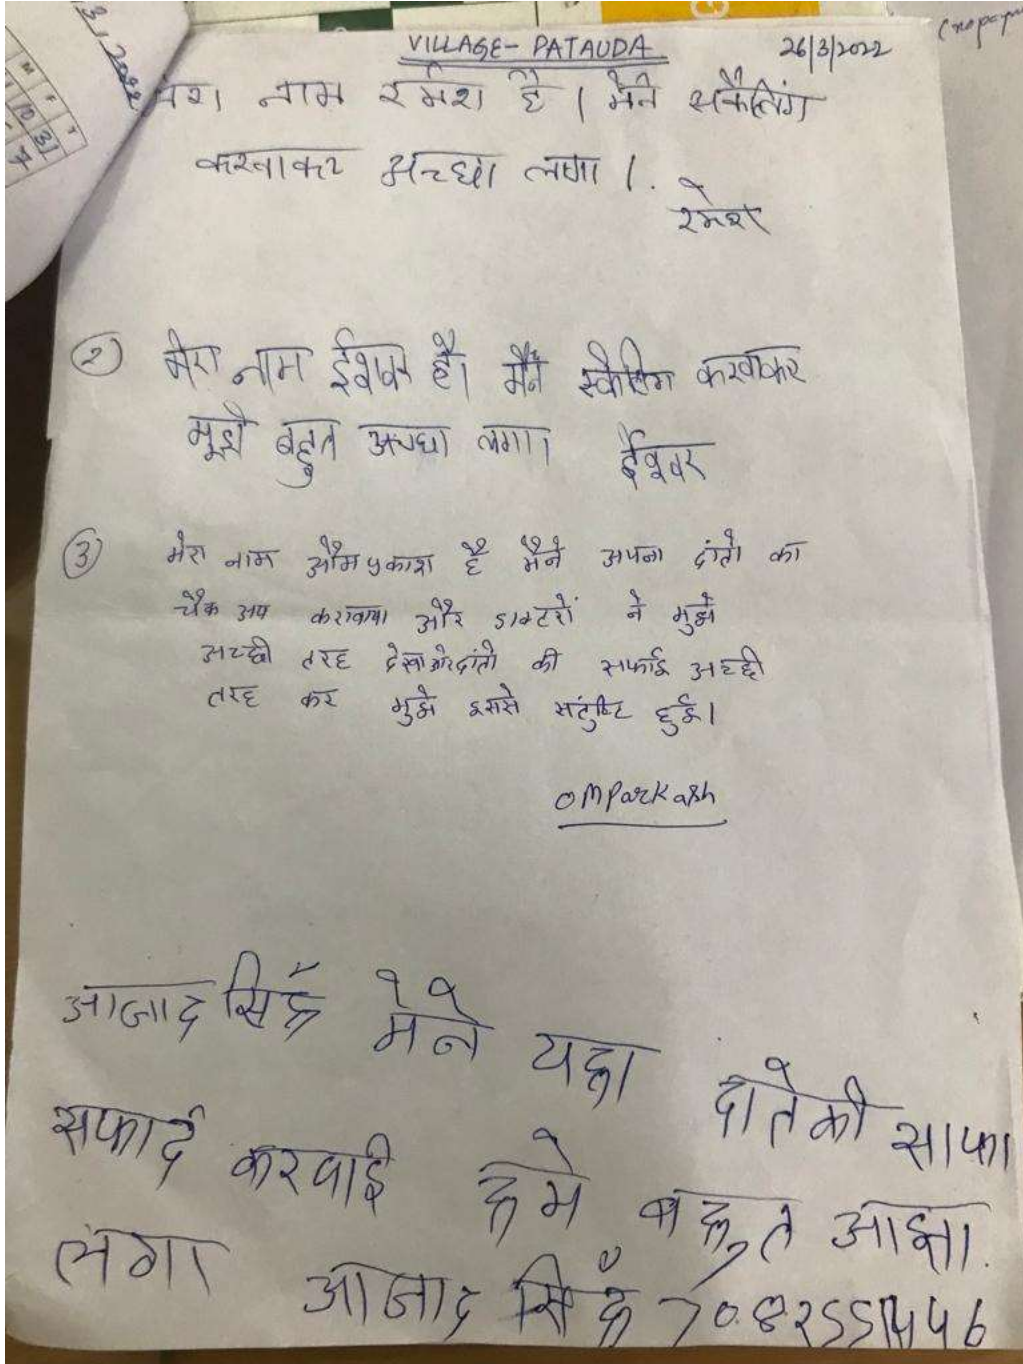 VILLAGE- PATAUDA 26/3/2022
मेरा नाम रमेश है। मेने सकैलिंग
करवाकर अच्छा लगा।.
रमेश
② मेरा नाम ईश्वर है। मैने स्केलिंग करवाकर
मूझे बहुत अच्छा लगा। ईश्वर
③ मेरा नाम ओमप्रकाश है मैने अपना दांतो का
चैक अप करावाया और डाक्टरों ने मुझे
अच्छी तरह देखा और दांतो की सफाई अच्छी
तरह कर मुझे इससे संतुष्टि हुई।
OMParkash
आजाद सिहँ मेने यहा दातेकी साफा
सफाई करवाई हमे बहुत
लगा आजाद सिहँ
3, 2022